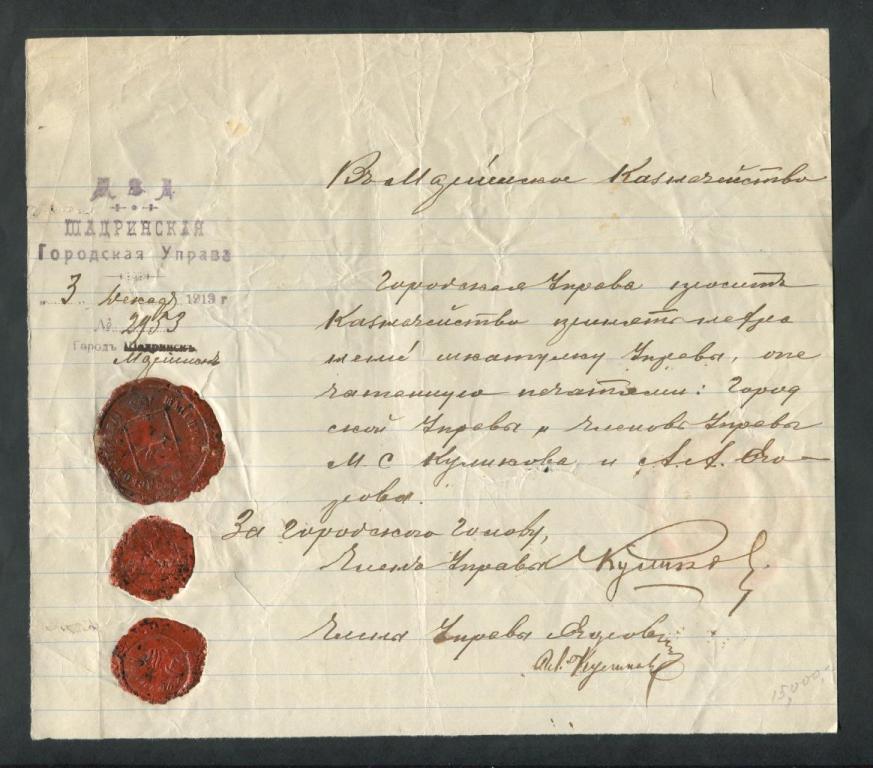 М В Д
ШАДРИНСКАЯ
Городская Управа
„ 3 „ Декабр 1919 г
№ 2953
Городъ Шадринскъ
Маріинскъ
Въ Маріинское Казначейство
Городская Управа проситъ
Казначейство принять на хра
неніе шкатулку Управы, опе
чатанную печатями: Город
ской Управы и Членовъ Управы
М. С. Куликова и А. А. Его-
рова.
За Городского Голову,
Членъ Управы Куликов
Члены Управы
15,000